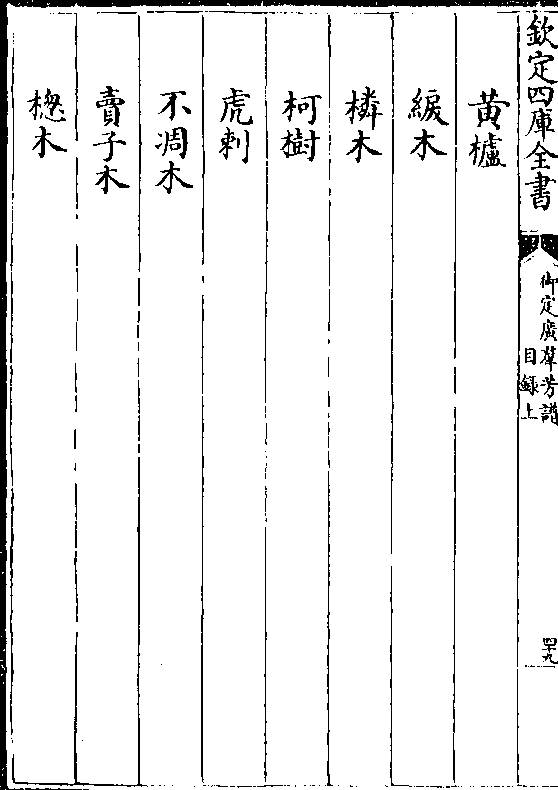 欽定四庫全書
御定廣羣芳譜
目錄上
四十九
黄櫨
緩木
橉木
柯樹
虎刺
不凋木
賣子木
楤木